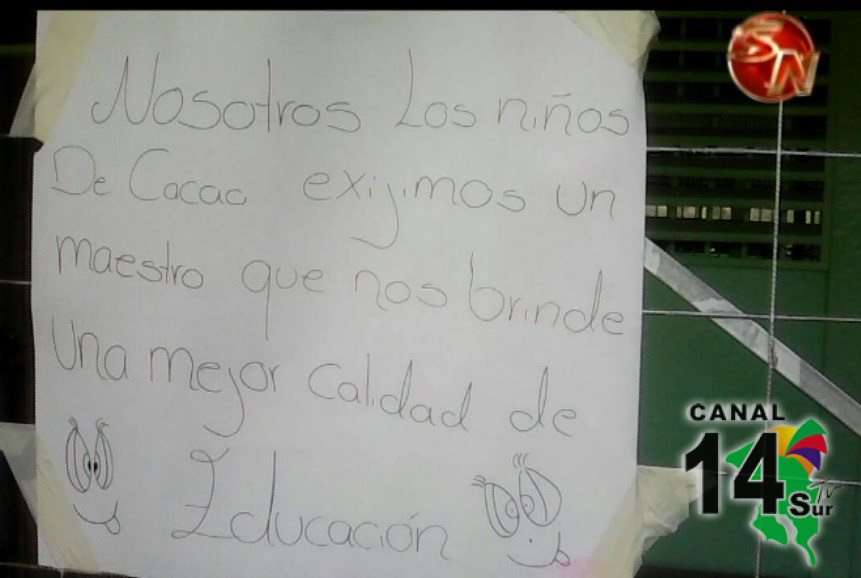 SN
Nosotros Los niños
De Cacao exijimos un
maestro que nos brinde
una mejor calidad de
Educación
CANAL
14
TV
Sur